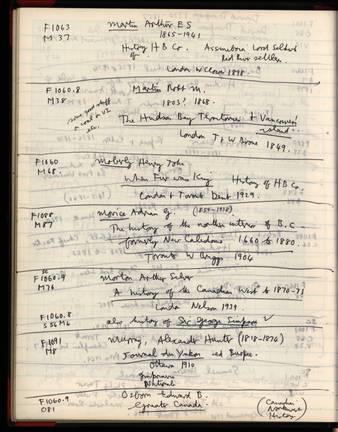 F1063 Martin Archer E S
M.37 1865-1941
History H B Co. Assiniboia Lord Selkirk
of Red River settlers.
London W Clowes 1898.
F1060.8 Martin Robt M.
M38 1803? 1868.
some good stuff
on coal on V I
etc.
The Hudson Bay Territories & Vancouver
island...
London T & W Boone 1849.
F1060 Moberly Henry John
M68 When Fur was King. History of H B Co.
London & Toronto Dent 1929.
F1088 Morice Adrian G. (1859-1938)
M87 The history of the northern interior of B.C.
formerly New Caledonia 1660 to 1880
Toronto W Briggs 1904
F1060.9 Morton Arthur Silver
M76 A history of the Canadian West to 1870-71
London Nelson 1939
F1060.8
S56M6 also history of Sir George Simpson
F1091 Murray, Alexander Hunter (1818-1874)
M8 Journal du Yukon ed Burpee.
Ottawa 1910
National
F1060.9 Osborn Edward B.
O81 Greater Canada.
(Canadian
Northwest
History)